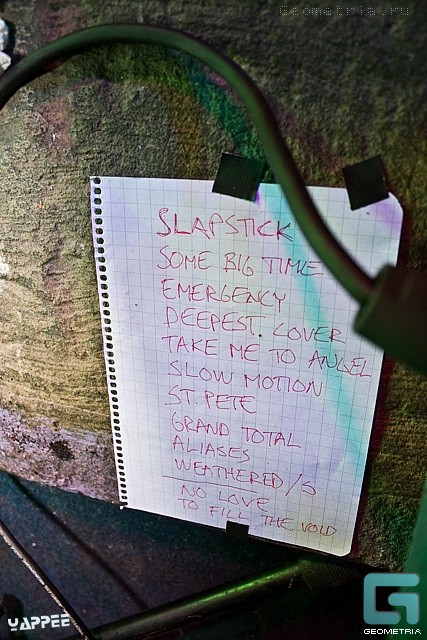 Geometria.ru
SLAPSTICK
SOME BIG TIME
EMERGENCY
DEEPEST LOVER
TAKE ME TO ANGEL
SLOW MOTION
ST. PETE
GRAND TOTAL
ALIASES
WEATHERED/S
NO LOVE
TO FILL THE VOID
YAPPEE
GEOMETRIA